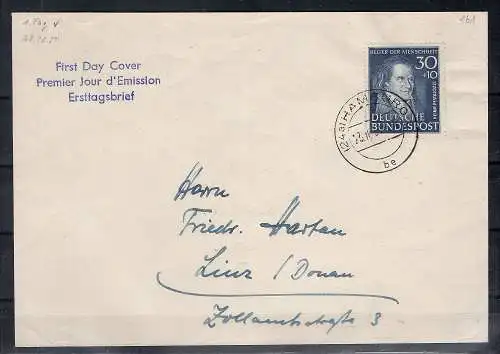 1. Tag
161
First Day Cover
Premier Jour d'Emission
Ersttagsbrief
HELFER DER MENSCHHEIT
30
+10
DEUTSCHE
BUNDESPOST
(24a) HAMBURG
be
Herrn
Friedr. Hartan
Linz / Donau
Zollamtsstraße 3